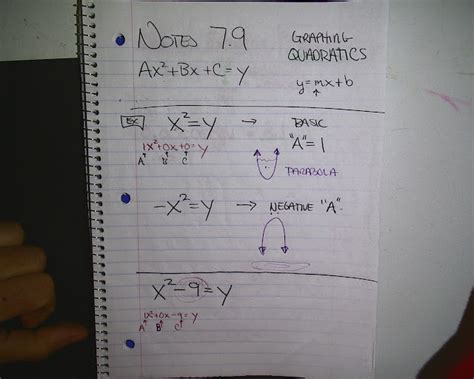 NOTES 7.9
GRAPHING
QUADRATICS
Ax²+Bx+C=y
y=mx+b
EX
x²=y → BASIC
"A"=1
1x²+0x+0=y
A B C
PARABOLA
-x²=y → NEGATIVE "A"
x²-9=y
1x²+0x-9=y
A B C